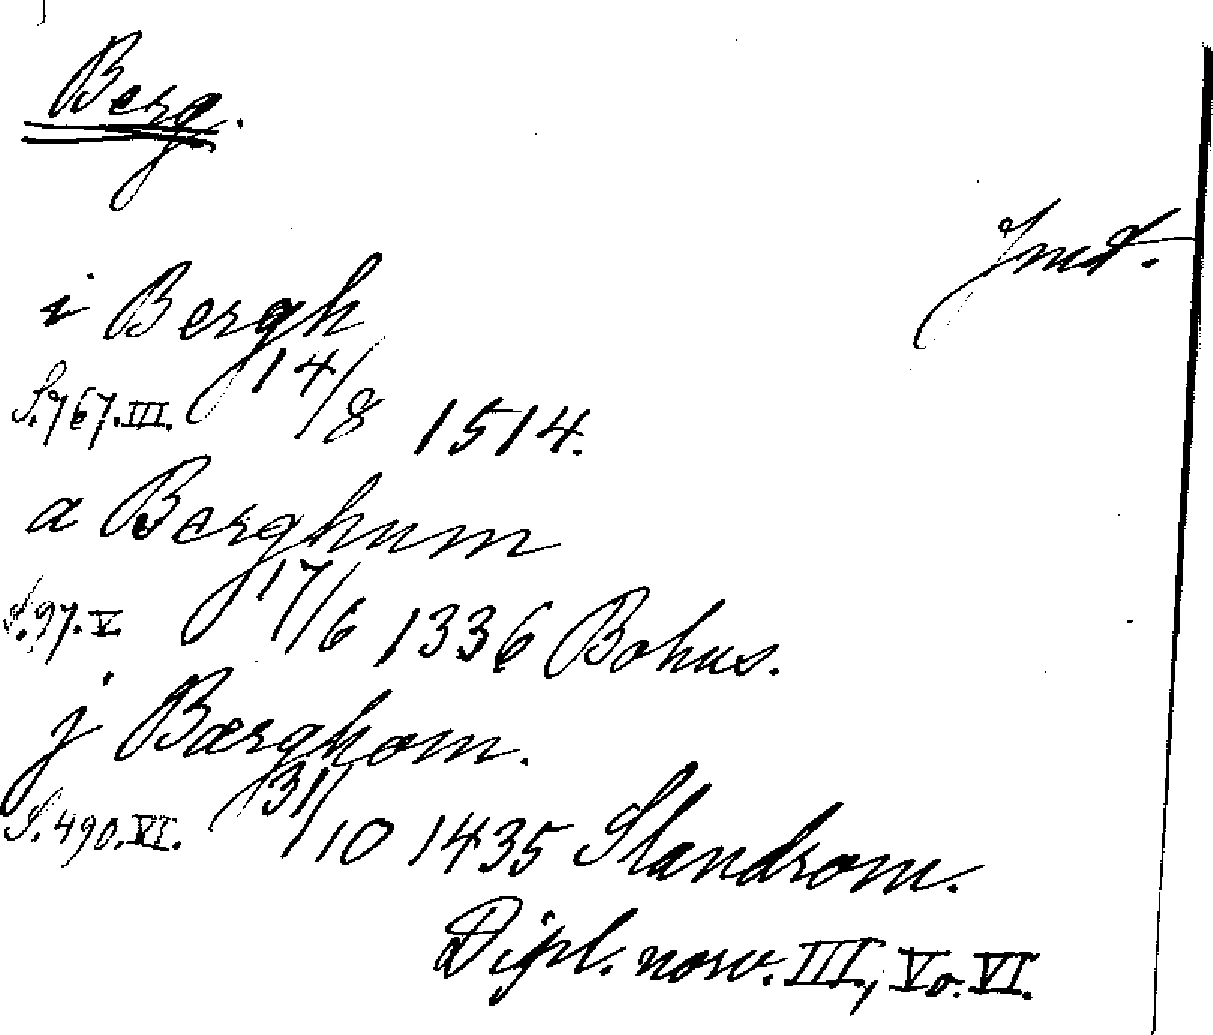 Berg.
Jmd.
i Bergh
S. 767. III. 14/8 1514.
a Berghum
S. 97. V. 17/6 1336 Bohus.
j Bærghom.
S. 490. VI. 31/10 1435 Standrom.
Dipl. norv. III, V o. VI.